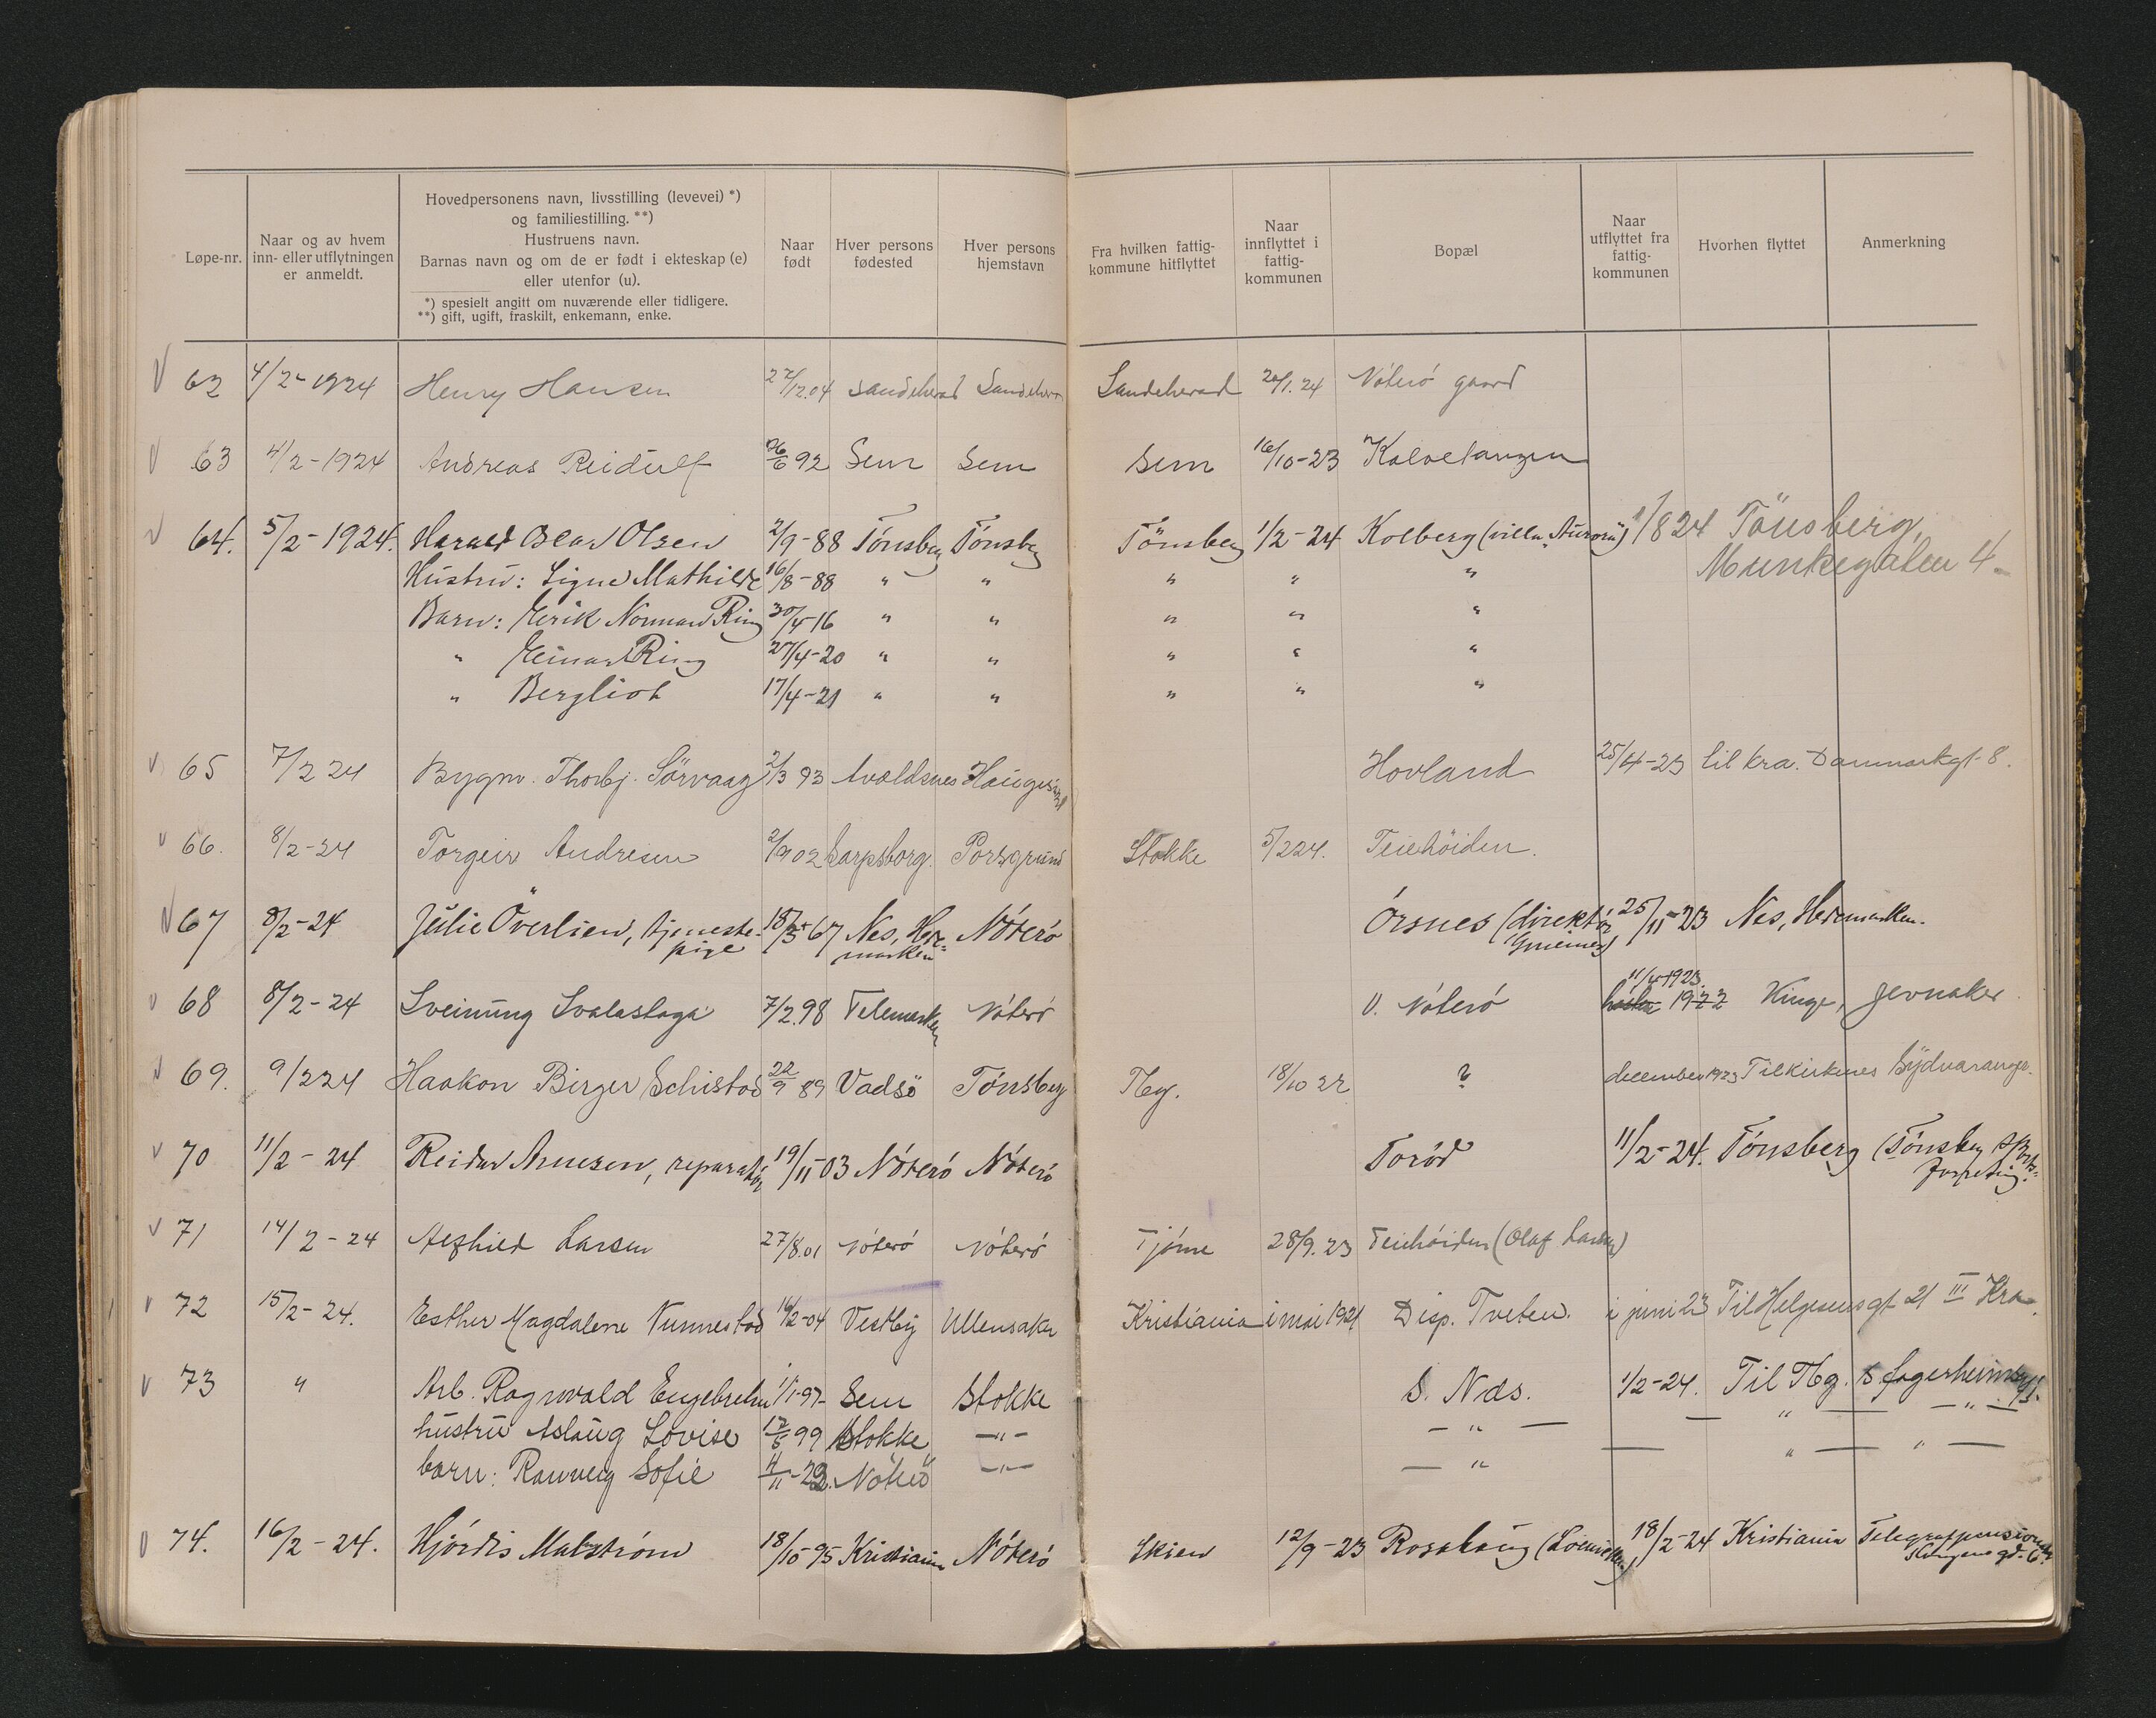 Løpe-nr.
Naar og av hvem
inn- eller utflytningen
er anmeldt.
Hovedpersonens navn, livsstilling (levevei) *)
og familiestilling. **)
Hustruens navn.
Barnas navn og om de er født i ekteskap (e)
eller utenfor (u).
*) spesielt angitt om nuværende eller tidligere.
**) gift, ugift, fraskilt, enkemann, enke.
Naar
født
Hver persons
fødested
Hver persons
hjemstavn
Fra hvilken fattig-
kommune hitflyttet
Naar
innflyttet i
fattig-
kommunen
Bopæl
Naar
utflyttet fra
fattig-
kommunen
Hvorhen flyttet
Anmerkning
62 4/2-1924 Henry Hansen 22/12.04 Sandeherad Sandeherad Sandeherad 20/1.24 Nøterö gaard
63 4/2-1924 Andreas Reidulf 26/6 92 Sem Sem Sem 16/10-23 Kalvetangen
64. 5/2-1924. Harald Olsen 2/9-88 Tónsberg Tónsberg Tönsberg 1/2-24 Kolberg (villa Aurora) 1/8 24 Tönsberg,
Munkegaten 4.
Hustru: Signe Mathilde 16/8-88 " " " " "
Barn: Eirik Normann Ring 30/4-16 " " " " "
" Einar Ring 27/4-20 " " " " "
" Bergliot 17/4-21 " " " " "
65 7/2 24 Bygm. Thorbj. Sörvaag 2/3 93 Avaldsnes Haugesund Hovland 25/4-23 til Kra. Danmarkgt 8.
66. 8/2-24 Torgeir Andresen 2/9 02 Sarpsborg. Porsgrund Stokke 5/2 24. Teiehöiden.
67 8/2-24 Julie Överlien, tjeneste-
pige 18/5 67 Nes, Hede-
marken Nóteró Órsnes (direktör 25/11-23 Nes, Hedemarken.
68 8/2-24 Sveinung Svalastoga 7/2.98 Telemarken Nóteró V. Nóteró 11/4 1923.
høsten 1922 Kinge, Jevnaker
69. 9/2 24 Haakon Birger Schistad 22/9 89 Vadsö Tónsberg Tbg. 18/10 22 ? december 1923 Til Kirkenes Sydvaranger.
70 11/2-24 Reidar Arnesen, reparatör 19/11-03 Nóteró Nóteró Toród 11/2-24. Tónsberg (Tönsberg
71 14/2-24 Aeshild Larsen 27/8.01 Nóteró Nóteró Tjóme 28/9.23 Teiehóiden (Olaf Larsen)
72 15/2-24. Esther Magdalene Nunnestad 14/2-04 Vestby Ullensaker Kristiania i mai 1921 Disp. Tveten. i juni 23 Til Helgesensgt 21 III Kra.
73 " Arb. Ragnvald Engebretsen 1/1-97 Sem Stokke S. Nes. 1/2-24. Til Tbg.
hustru Aslaug Lovise 12/5 99 Stokke -"- -"- - " - -"-
barn: Ranveig Sofie 4/11-23. Nóteró -"- - " - " - " -
74. 16/2-24. Hjórdis Malstróm 18/10-95 Kristiania Nóteró Skien 12/9-23 Rosahaug 18/2-24 Kristiania